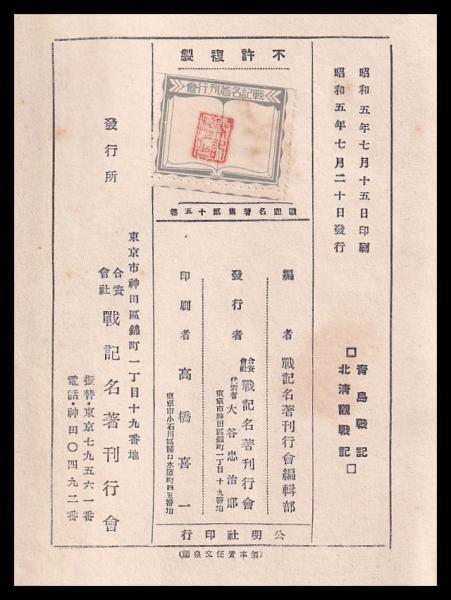 昭和五年七月十五日印刷
昭和五年七月二十日發行
□青島戰記
北淸觀戰記□
不許複製
戰記名著刊行會
戰記名著集第十五卷
編者 戰記名著刊行會編輯部
發行者 合資會社 戰記名著刊行會
代表者 大谷忠治郎
東京市神田區錦町一丁目十九番地
印刷者 高橋喜一
東京市小石川區關口水道町四五番地
公明社印行
發行所
東京市神田區錦町一丁目十九番地
合資會社 戰記名著刊行會
振替・東京七九五六一番
電話・神田〇四九二番
(製本責任文泉閣)